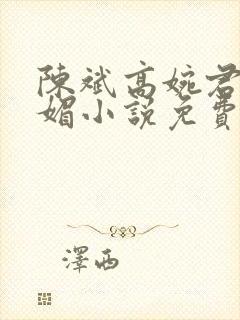 陳斌高婉君
媚小說免費
澤西